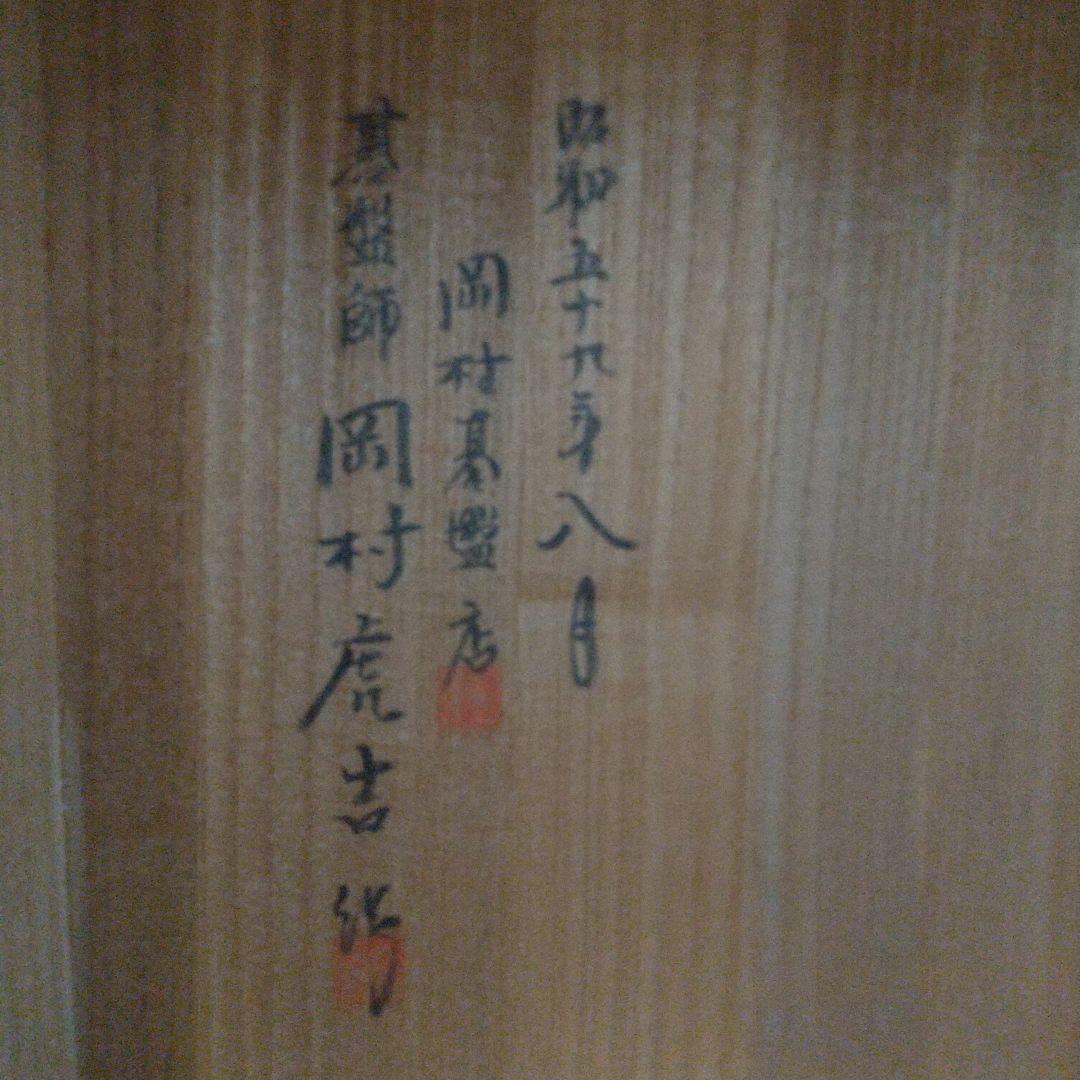 昭和五十九年八月
岡村碁盤店
碁盤師 岡村虎吉